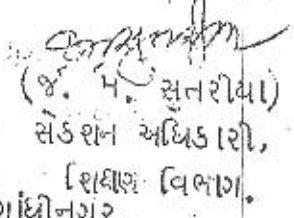 (જે. પે. સુતરીયા)
સેક્શન અધિકારી,
શિક્ષણ વિભાગ.
ગાંધીનગર